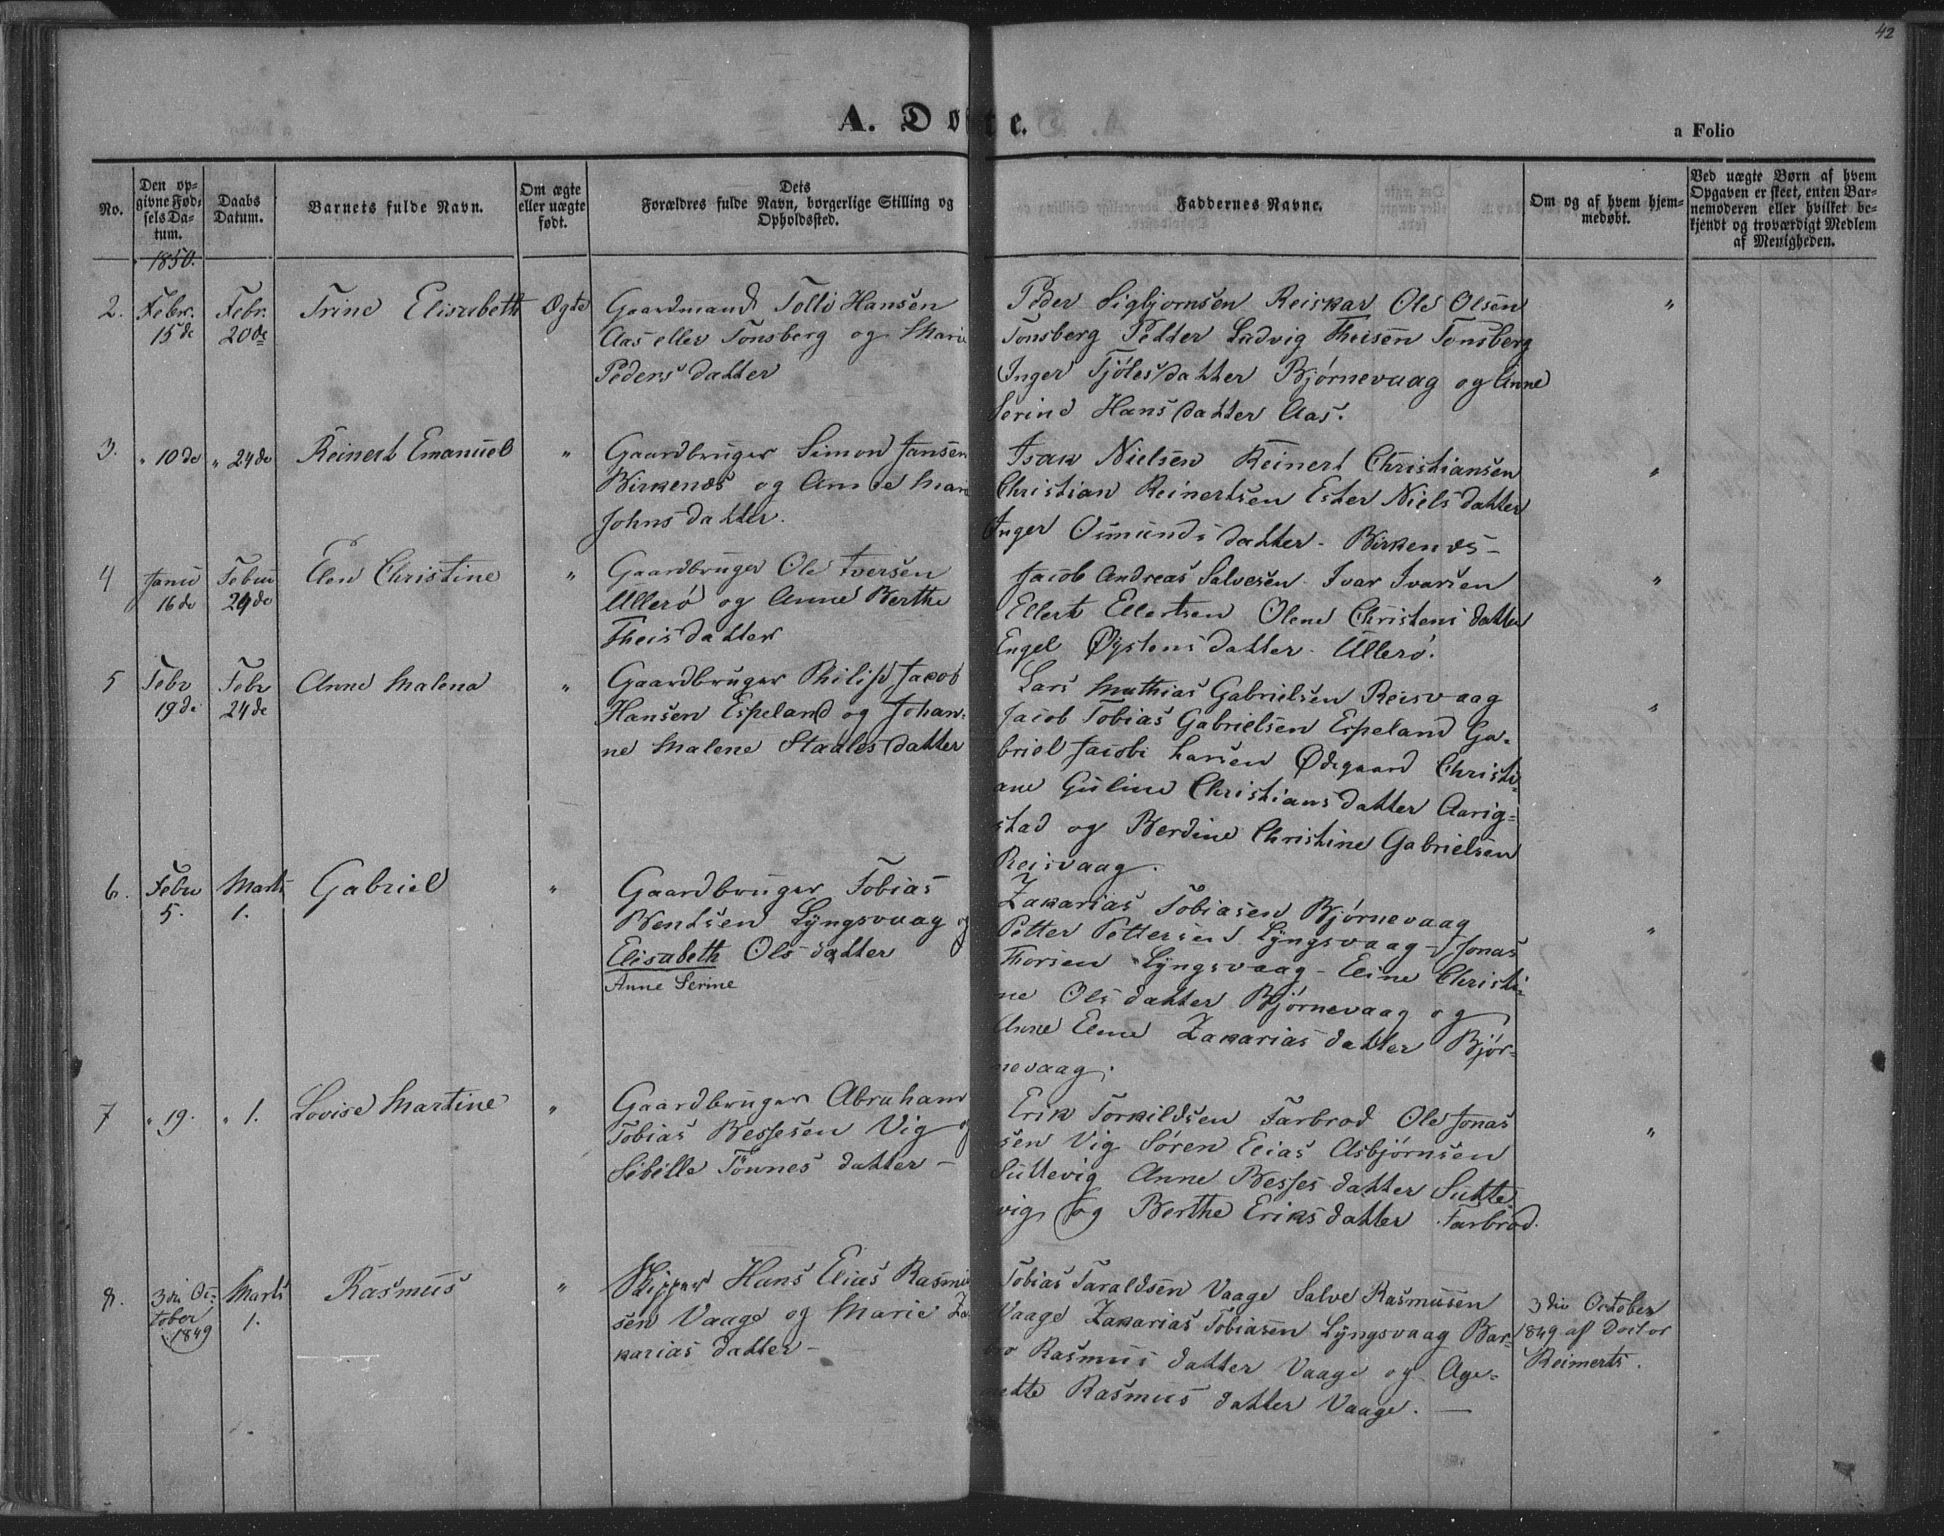 42
A. Døbte.
a Folio
No.
Den op-
givne Fød-
sels Da-
tum.
Daabs
Datum.
Barnets fulde Navn.
Om ægte
eller uægte
født.
Dets
Forældres fulde Navn, borgerlige Stilling og
Opholdssted.
Faddernes Navne.
Om og af hvem hjem-
medøbt.
Ved uægte Børn af hvem
Opgaven er skeet, enten Bar-
nemoderen eller hvilket be-
kjendt og troværdigt Medlem
af Menigheden.
1850.
2.
Febr.
15de
Febr.
20de
Trine Elisabeth
Ægte
Gaardmand Tollo Hansen
Aas eller Tønsberg og Marie
Peders datter
Peder Sigbjørnsen Reiskar Ole Olsen
Tønsberg Petter Ludvig Theisen Tønsberg
Inger Tjøles datter Bjørnevaag og Anne
Serine Hans datter Aas.
"
3.
" 10de
" 24de
Reinert Emanuel
"
Gaardbruger Simon Jansen
Birkenæs og Anne Marie
Johns datter.
Isak Nielsen Reinert Christiansen
Christian Reinertsen Ester Niels datter
Inger Osmunds datter - Birkenæs -
"
4
Janu
16de
Febru
24de
Elen Christine
"
Gaardbruger Ole Iversen
Ullerø og Anne Berthe
Theis datter
Jacob Andreas Salvesen - Ivar Ivarsen
Ellert Ellertsen Olene Christens datter
Engel Øystens datter - Ullerø.
"
5
Febr
19de
Febr
24de
Anne Malena
"
Gaardbruger Philip Jacob
Hansen Espeland og Johan-
ne Malene Staales datter
Lars Mathias Gabrielsen Reisvaag
Jacob Tobias Gabrielsen Espeland Ga-
briel Jacobi Larsen Ødegaard Christi-
ane Guline Christians datter Aarig-
stad og Berdine Christine Gabrielsen
Reisvaag.
"
6.
Febru
5.
Marts
1.
Gabriel
"
Gaardbruger Tobias
Bentsen Lyngsvaag og
Elisabeth Ols datter
Anne Serine
Zakarias Tobiasen Bjørnevaag
Petter Pettersen Lyngsvaag - Jonas
Thorsen Lyngsvaag - Eline Christi-
ne Ols datter Bjørnevaag og
Anne Elene Zakarias datter Bjør-
nevaag.
"
7
" 19.
" 1.
Lovise Martine
"
Gaardbruger Abraham
Tobias Bessesen Vig og
Sibille Tønnes datter -
Erik Torkildsen Farbrod Ole Jonas
sen Vig Søren Elias Asbjørnsen
Suttevig Anne Besses datter Sutte
vig og Berthe Eriks datter Farbrod.
"
8.
3die Oc-
tober
1849
Marts
1.
Rasmus
"
Skipper Hans Elias Rasmu
sen Vaage og Marie Za
karias datter -
Tobias Taraldsen Vaage Salve Rasmusen
Vaage Zakarias Tobiasen Lyngsvaag Bar-
bro Rasmus datter Vaage og Age-
nette Rasmus datter Vaage. -
3die October
1849 af Doctor
Reimerts.